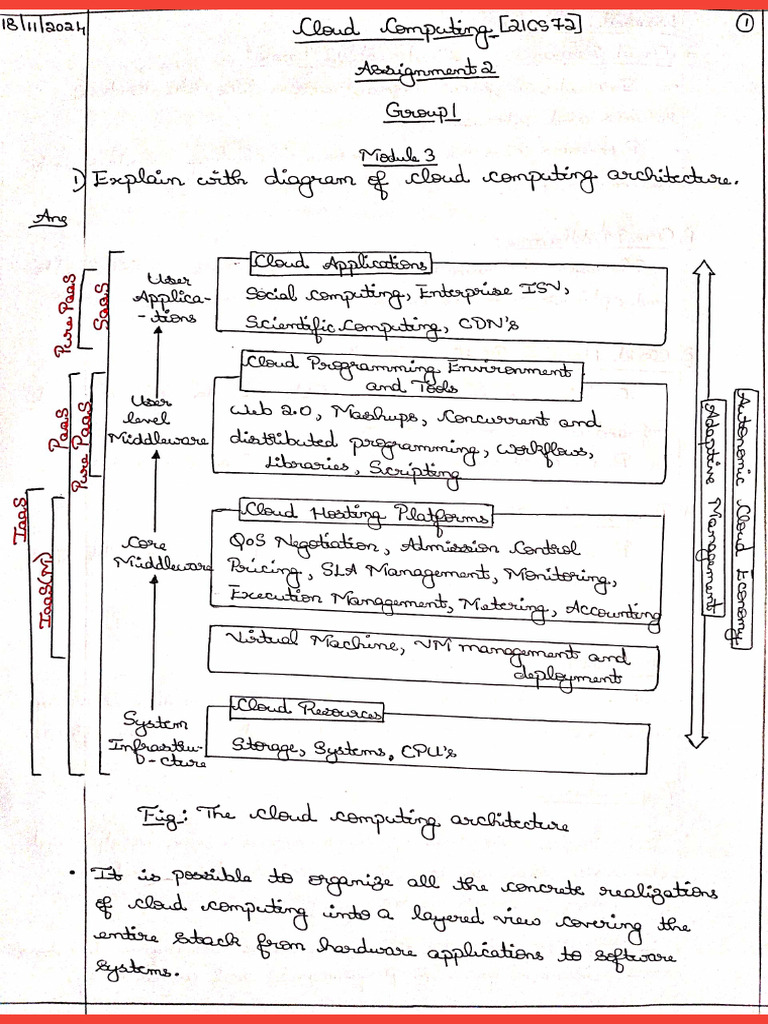 18/11/2024
Cloud Computing [21CS72]
1
Assignment 2
Group 1
Module 3
1) Explain with diagram of cloud computing architecture.
Ans
Pure PaaS
SaaS
User
Applica-
-tions
Cloud Applications
Social computing, Enterprise ISV,
Scientific Computing, CDN's
PaaS
Pure PaaS
User
level
Middleware
Cloud Programming Environment
and Tools
Web 2.0, Mashups, Concurrent and
distributed programming, workflows,
Libraries, Scripting
IaaS
IaaS(M)
Core
Middleware
Cloud Hosting Platforms
QoS Negotiation, Admission Control
Pricing, SLA Management, Monitoring,
Execution Management, Metering, Accounting
Virtual Machine, VM management and
deployment
System
Infrastru-
-cture
Cloud Resources
Storage, Systems, CPU's
Adaptive Management
Autonomic Cloud Economy
Fig: The cloud computing architecture
• It is possible to organize all the concrete realizations
of cloud computing into a layered view covering the
entire stack from hardware applications to software
systems.